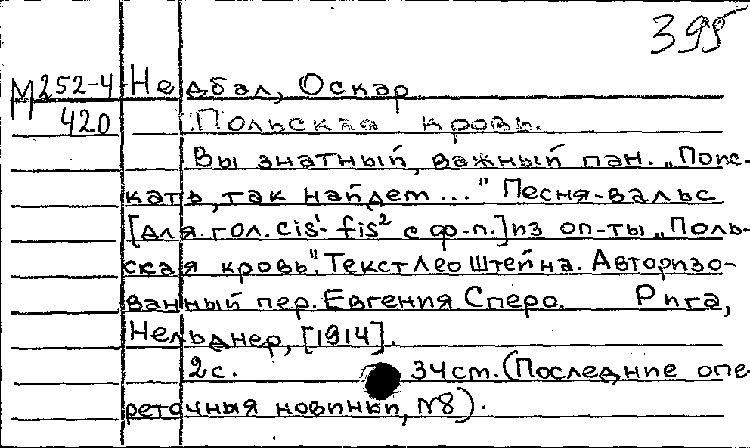 395
М 252-4 Недбал, Оскар
420 Польская кровь.
Вы знатный, важный пан. „Поис-
кать, так найдем..." Песня-вальс
[для гол. cis¹- fis² с ф-п.] из оп-ты „Поль-
ская кровь". Текст Лео Штейна. Авторизо-
ванный пер. Евгения Сперо. Рига,
Нельднер, [1914].
2с. 34 см. (Последние опе-
реточныя новинки, №8).